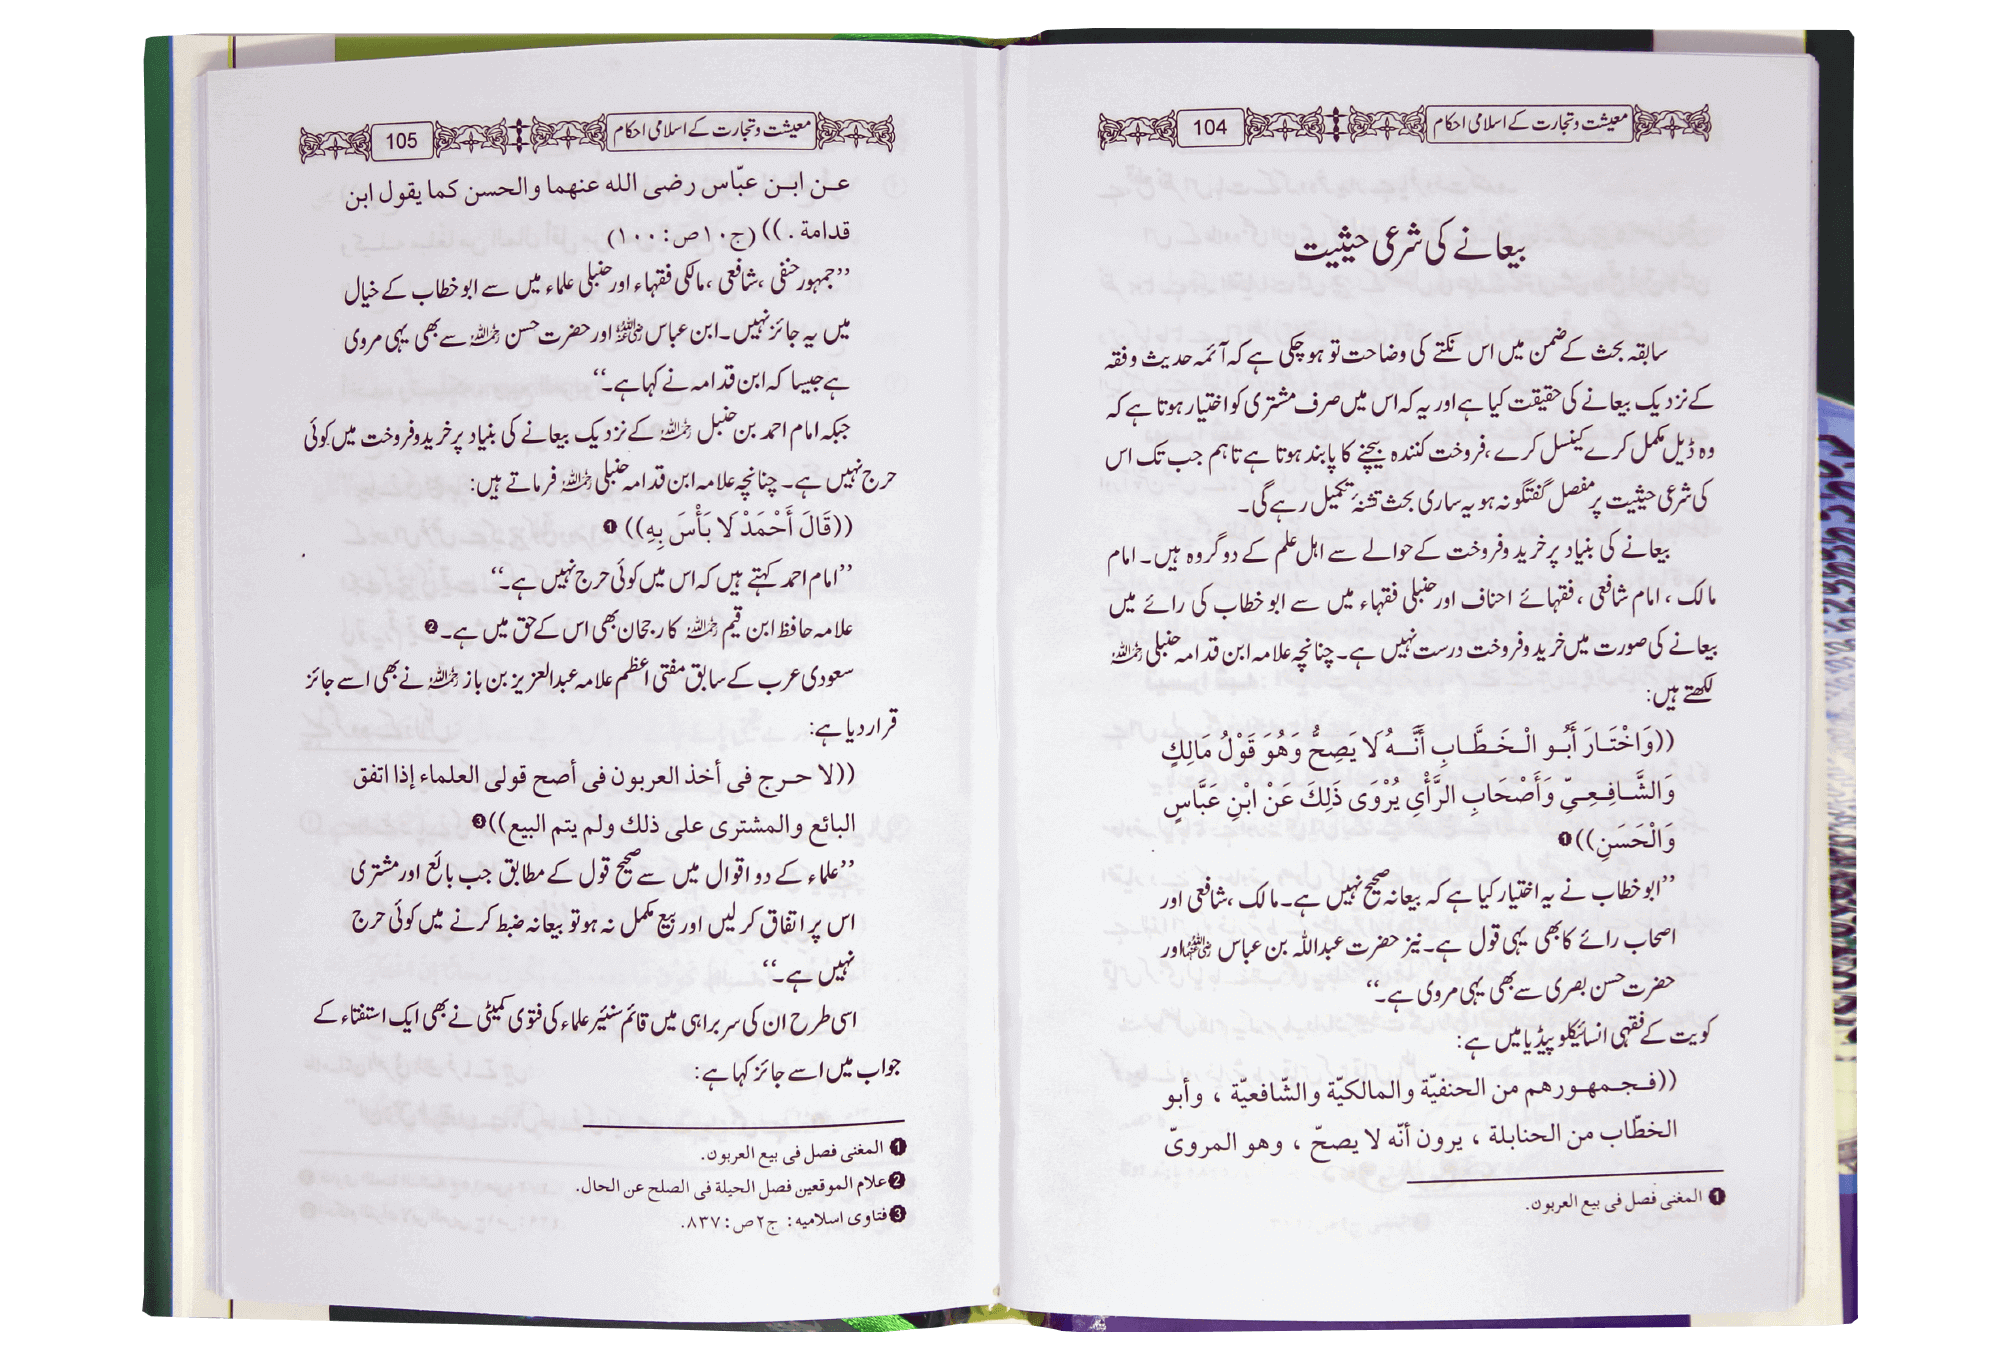 معیشت و تجارت کے اسلامی احکام 104
بیعانے کی شرعی حیثیت
سابقہ بحث کے ضمن میں اس نکتے کی وضاحت تو ہو چکی ہے کہ آئمہ حدیث وفقہ
کے نزدیک بیعانے کی حقیقت کیا ہے اور یہ کہ اس میں صرف مشتری کو اختیار ہوتا ہے کہ
وہ ڈیل مکمل کرے کینسل کرے، فروخت کنندہ بیچنے کا پابند ہوتا ہے تاہم جب تک اس
کی شرعی حیثیت پر مفصل گفتگو نہ ہو یہ ساری بحث تشنۂ تکمیل رہے گی۔
بیعانے کی بنیاد پر خرید وفروخت کے حوالے سے اہل علم کے دو گروہ ہیں۔ امام
مالک، امام شافعی، فقہائے احناف اور حنبلی فقہاء میں سے ابو خطاب کی رائے میں
بیعانے کی صورت میں خرید وفروخت درست نہیں ہے۔ چنانچہ علامہ ابن قدامہ حنبلی رحمہ اللہ
لکھتے ہیں:
((وَاخْتَارَ أَبُو الْخَطَّابِ أَنَّهُ لَا يَصِحُّ وَهُوَ قَوْلُ مَالِكٍ
وَالشَّافِعِيِّ وَأَصْحَابِ الرَّأْيِ يُرْوَى ذَلِكَ عَنْ ابْنِ عَبَّاسٍ
وَالْحَسَنِ))❶
’’ابو خطاب نے یہ اختیار کیا ہے کہ بیعانہ صحیح نہیں ہے۔ مالک، شافعی اور
اصحاب رائے کا بھی یہی قول ہے۔ نیز حضرت عبداللہ بن عباس رضی اللہ عنہما اور
حضرت حسن بصری سے بھی یہی مروی ہے۔‘‘
کویت کے فقہی انسائیکلو پیڈیا میں ہے:
((فـجمهورهم من الحنفيّة والمالكيّة والشّافعيّة ، وأبو
الخطّاب من الحنابلة ، يرون أنّه لا يصحّ ، وهو المروىّ
❶ المغنى فصل فى بيع العربون.
معیشت و تجارت کے اسلامی احکام 105
عن ابن عبّاس رضى الله عنهما والحسن كما يقول ابن
قدامة .)) (ج١٠ ص:١٠٠)
’’جمہور حنفی، شافعی، مالکی فقہاء اور حنبلی علماء میں سے ابو خطاب کے خیال
میں یہ جائز نہیں۔ ابن عباس رضی اللہ عنہ اور حضرت حسن رحمہ اللہ سے بھی یہی مروی
ہے جیسا کہ ابن قدامہ نے کہا ہے۔‘‘
جبکہ امام احمد بن حنبل رحمہ اللہ کے نزدیک بیعانے کی بنیاد پر خرید وفروخت میں کوئی
حرج نہیں ہے۔ چنانچہ علامہ ابن قدامہ حنبلی رحمہ اللہ فرماتے ہیں:
((قَالَ أَحْمَدْ لَا بَأْسَ بِهِ)) ❶
’’امام احمد کہتے ہیں کہ اس میں کوئی حرج نہیں ہے۔‘‘
علامہ حافظ ابن قیم رحمہ اللہ کا رجحان بھی اس کے حق میں ہے۔❷
سعودی عرب کے سابق مفتی اعظم علامہ عبدالعزیز بن باز رحمہ اللہ نے بھی اسے جائز
قرار دیا ہے:
((لا حرج فى أخذ العربون فى أصح قولى العلماء إذا اتفق
البائع والمشترى على ذلك ولم يتم البيع))❸
’’علماء کے دو اقوال میں سے صحیح قول کے مطابق جب بائع اور مشتری
اس پر اتفاق کر لیں اور بیع مکمل نہ ہو تو بیعانہ ضبط کرنے میں کوئی حرج
نہیں ہے۔‘‘
اسی طرح ان کی سربراہی میں قائم سنئیر علماء کی فتویٰ کمیٹی نے بھی ایک استفتاء کے
جواب میں اسے جائز کہا ہے:
❶ المغنى فصل فى بيع العربون.
❷ علام الموقعين فصل الحيلة فى الصلح عن الحال.
❸ فتاوى اسلاميه: ج٢ ص:٨٣٧.